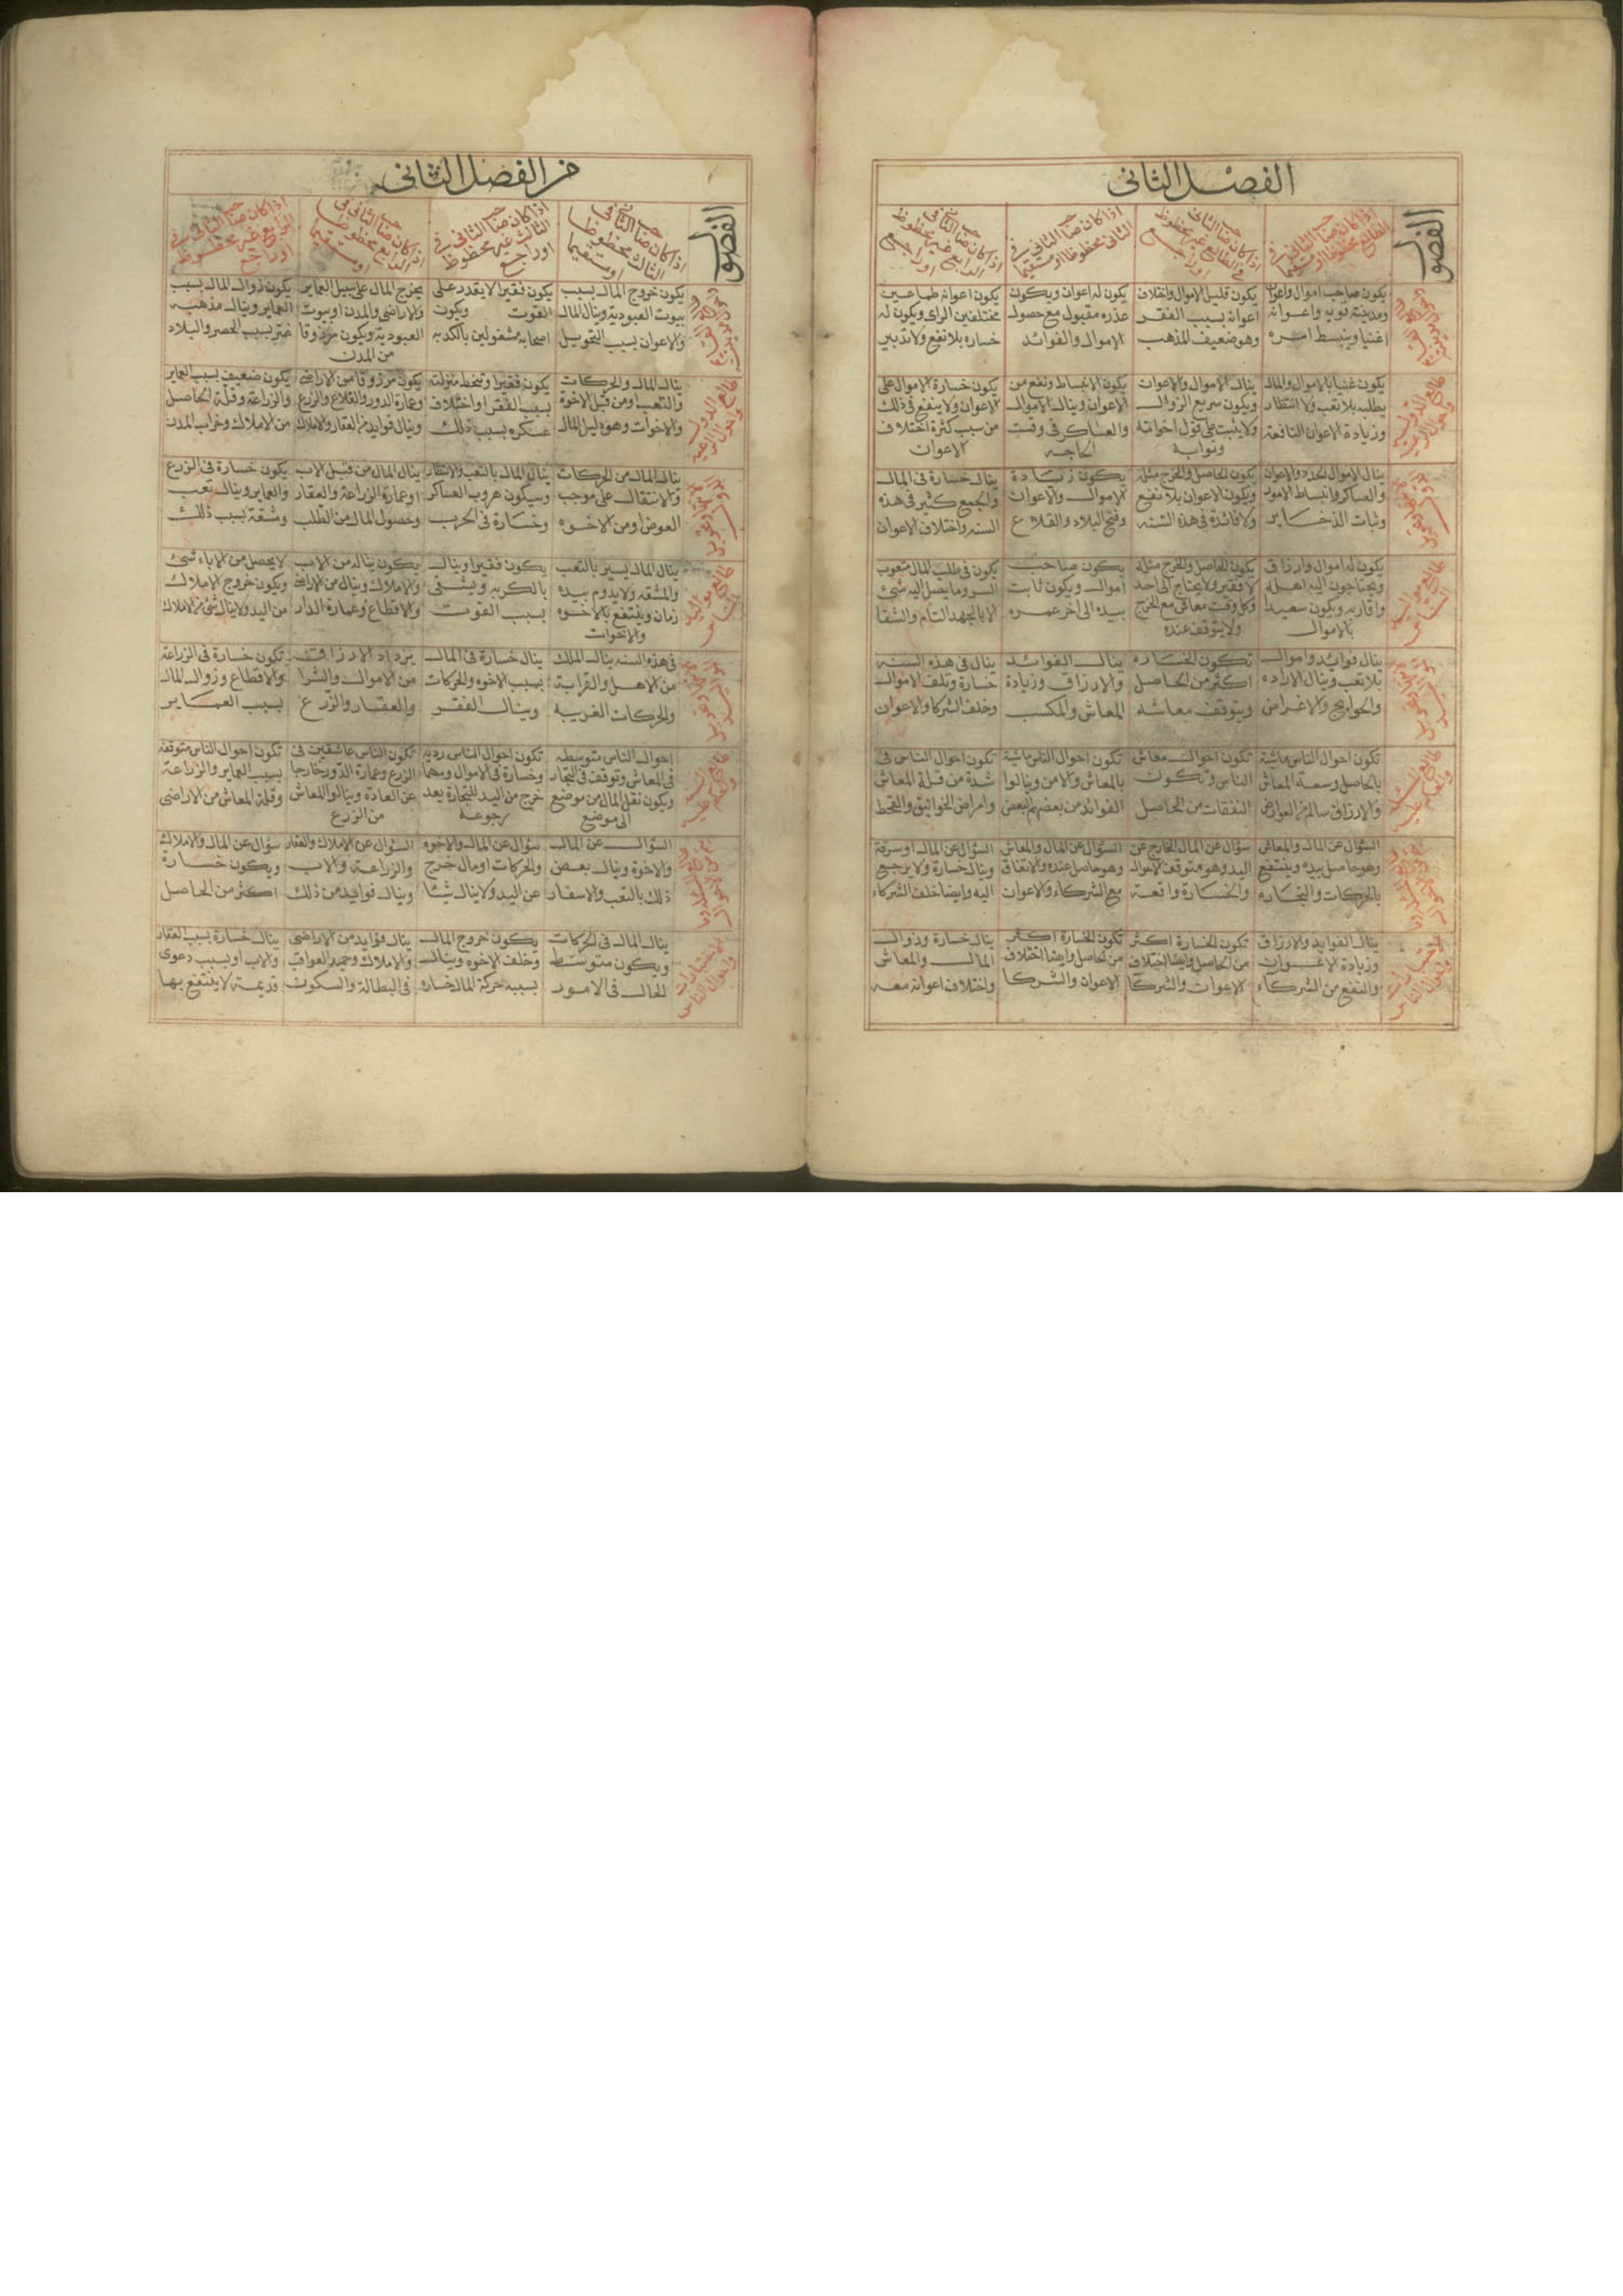 الفصل الثاني
الفصول
اذا كان صاحب الثاني في
الطالع محظوظا او مستقيما
اذا كان صاحب الثاني
في الطالع غير محظوظ
او راجع
اذا كان صاحب الثاني في
الثاني محظوظا او مستقيما
اذا كان صاحب الثاني في
غير محظوظ
او راجع
يكون صاحب اموال واعوان
ومدينة قويه واعوانه
اغنيا وينبسط امره
يكون قليل الاموال واتلاف
اعوانه بسبب الفقر
وهو ضعيف المذهب
يكون له اعوان ويكون
عذره مقبول مع حصول
الاموال والفوائد
يكون اعوانه طماعين
مختلفين الراى ويكون له
خساره بلا نفع ولا تدبير
طالع الدوله
واحوال الرعيه
يكون غنيا بالاموال والمال
يطلبه بلا تعب ولا انتظار
وزيادة الاعوان النافعة
ينال الاموال والاعوان
ويكون سريع الزوال
ولا يثبت على قول اخوانه
ونوابه
يكون الانبساط ونفع من
الاعوان وينال الاموال
والعساكر فى وقت
الحاجه
يكون خسارة الاموال على
الاعوان ولا ينفع فى ذلك
من سبب كثرة اختلاف
الاعوان
ينال الاموال الجدد والاعوان
والعساكر وانبساط الامور
وثبات الذخاير
يكون الحاصل والخرج مثله
ويكون الاعوان بلا نفع
ولا فائدة فى هذه السنه
يكون زيادة
الاموال والاعوان
وفتح البلاد والقلاع
ينال خسارة فى المال
والجمع كثير فى هذه
السنه واختلاف الاعوان
طالع مواليد
الناس
يكون له اموال وارزاق
ويحتاجون اليه اهله
واقاربه ويكون سعيدا
بالاموال
يكون الحاصل والخرج مثله
لا فقير ولا يحتاج الى احد
وكل وقت معاش مع الخرج
ولا يتوقف عنده
يكون صاحب
اموال ويكون ثابت
بيده الى اخر عمره
يكون فى طلب المال متعوب
السر وما يصل اليه شئ
الا بالجهد التام والشقا
ينال فوائد واموال
بلا تعب وينال الاراده
والحوايج والاغراض
تكون الخساره
اكثر من الحاصل
ويتوقف معاشه
ينال الفوائد
والارزاق وزيادة
المعاش والمكسب
ينال فى هذه السنه
خسارة وتلف الاموال
وخلف الشركا والاعوان
تكون احوال الناس ماشية
بالحاصل وسعة المعاش
والارزاق سالم من العوارض
تكون احوال معاش
الناس وتكون
النفقات من الحاصل
تكون احوال الناس ماشية
بالمعاش والامن وينالوا
الفوائد من بعضهم البعض
تكون احوال الناس فى
شدة من قلة المعاش
وامراض الخوانيق والقحط
السؤال عن المال والمعاش
وهو حاصل بيده وينتفع
بالحركات والتجاره
سؤال عن المال الخارج عن
اليد وهو متوقف الاحوال
والخسارة واقعة
السؤال عن المال والمعاش
وهو حاصل عنده والاتفاق
مع الشركاء والاعوان
السؤال عن المال او سرقة
وينال خسارة ولا يرجع
اليه وايضا خلف الشركاء
الاختيارات
واحوال الناس
ينال الفوايد والارزاق
وزيادة الاعوان
والنفع من الشركاء
تكون الخسارة اكثر
من الحاصل وايضا اختلاف
الاعوان والشركا
تكون الخسارة اكثر
من الحاصل وايضا اختلاف
الاعوان والشركا
ينال خسارة وزوال
المال والمعاش
واختلاف اعوانه معه
من الفصل الثاني
الفصول
اذا كان صاحب الثاني في
الثالث محظوظا
او مستقيما
اذا كان صاحب الثاني في
الثالث غير محظوظ
او راجع
اذا كان صاحب الثاني في
الرابع محظوظا
او مستقيما
اذا كان صاحب الثاني في
الرابع غير محظوظ
او راجع
يكون خروج المال بسبب
بيوت العبودية وينال المال
والاعوان بسبب التحويل
يكون فقيرا لا يقدر على
القوت ويكون
اصحابه مشغولين بالكديه
يخرج المال على سبيل العماير
والاراضى والمدن او بيوت
العبودية ويكون مرزوقا
من المدن
يكون زوال المال بسبب
العماير وينال مذهبه
غير بسبب الحصر والبلاد
طالع الدوله
واحوال الرعيه
ينال المال والحركات
والتعب ومن قبل الاخوة
والاخوات وهو دليل المال
يكون فقيرا وتنحط منزلته
بسبب الفقر او اختلاف
عسكره بسبب ذلك
يكون مرزوقا من الاراضى
وعمارة الدور والقلاع والزرع
وينال فوايد من العقار والاملاك
يكون ضعيف بسبب العماير
والزراعة وقلة الحاصل
من الاملاك وخراب المدن
ينال المال من الحركات
والانتقال على موجب
العوض ومن الاخوه
ينال المال بالتعب والانتظار
وسيكون هروب العساكر
وخسارة فى الحرب
ينال المال من قبل الاب
او عمارة الزراعة والعقار
وحصول المال من الطلب
يكون خسارة فى الزرع
والعماير وينال تعب
وشقة بسبب ذلك
طالع مواليد
الناس
ينال المال يسير بالتعب
والمشقه ولا يدوم بيده
زمان وينتفع بالاخوه
والاخوات
يكون فقيرا وينال
بالكربه ويشقى
بسبب القوت
يكون يناله من الاب
والاملاك وينال من الاراضى
والاقطاع وعمارة الدار
لا يحصل من الاباء شئ
ويكون خروج الاملاك
من اليد ولا ينال شئ من الاملاك
فى هذه السنه ينال الملك
من الاهل والقرابة
والحركات الغريبة
ينال خسارة فى المال
بسبب الاخوه والحركات
وينال الفقر
يزداد الارزاق
من الاموال والشرا
والعقار والزرع
تكون خسارة فى الزراعة
والاقطاع وزوال المال
بسبب العماير
احوال الناس متوسطه
فى المعاش وتوقف فى التجار
ويكون نقل المال من موضع
الى موضع
تكون احوال الناس رديه
وخسارة فى الاموال ومهما
خرج من اليد للتجارة بعد
رجوعه
تكون الناس عاشقين فى
الزرع وعمارة الدور خارجا
عن العادة وينالوا المعاش
من الزرع
تكون احوال الناس متوقفة
بسبب العماير والزراعة
وقلة المعاش من الاراضى
السؤال عن المال
والاخوة وينال بعض
ذلك بالتعب والاسفار
سؤال عن المال والاخوه
والحركات او مال خرج
عن اليد ولا ينال شيئا
السؤال عن الاملاك والعقار
والزراعة والاب
وينال فوايد من ذلك
سؤال عن المال والاملاك
ويكون خسارة
اكثر من الحاصل
الاختيارات
واحوال الناس
ينال المال فى الحركات
ويكون متوسط
الحال فى الامور
يكون خروج المال
وخلف الاخوه وينال
بسببه حركة المال خساره
ينال فوايد من الاراضى
والاملاك وحميد العواقب
فى البطالة والسكوت
ينال خسارة بسبب العقار
والاب او بسبب دعوى
قديمة لا ينتفع بها